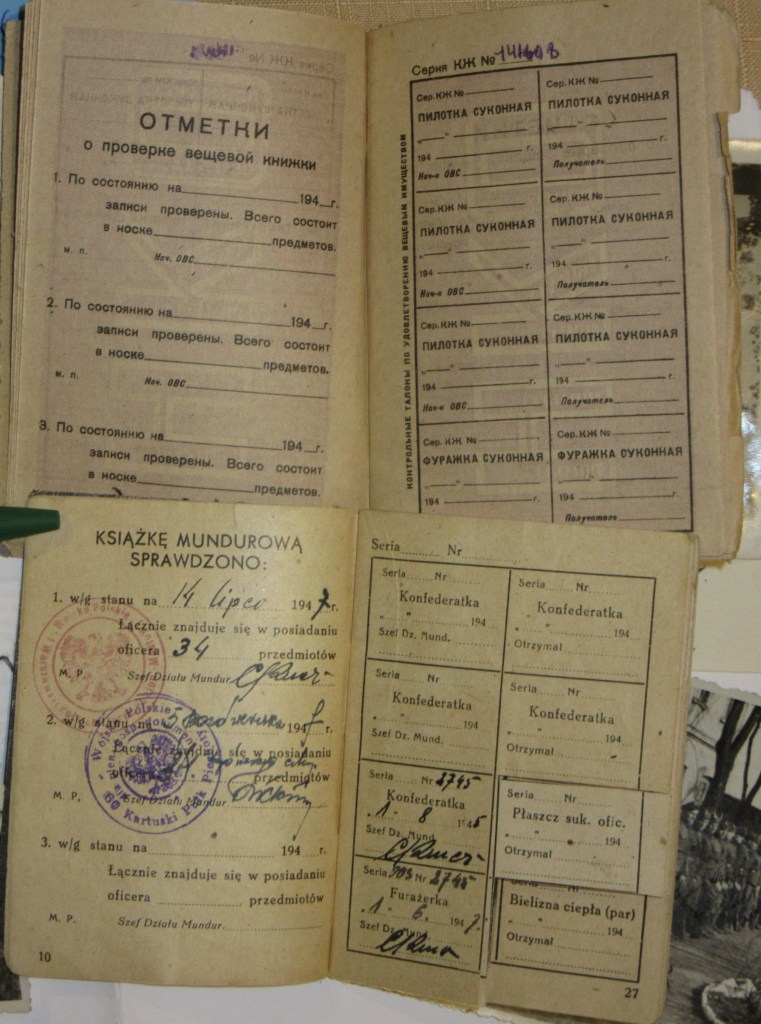 ОТМЕТКИ
о проверке вещевой книжки
1. По состоянию на 194 г.
записи проверены. Всего состоит
в носке предметов.
м. п. Нач. ОВС
2. По состоянию на 194 г.
записи проверены. Всего состоит
в носке предметов.
м. п. Нач. ОВС
3. По состоянию на 194 г.
записи проверены. Всего состоит
в носке предметов.
Серия КЖ № 141608
КОНТРОЛЬНЫЕ ТАЛОНЫ ПО УДОВЛЕТВОРЕНИЮ ВЕЩЕВЫМ ИМУЩЕСТВОМ
Сер. КЖ №
ПИЛОТКА СУКОННАЯ
" " 194 г.
Нач-к ОВС
Сер. КЖ №
ПИЛОТКА СУКОННАЯ
" " 194 г.
Получатель
Сер. КЖ №
ПИЛОТКА СУКОННАЯ
" " 194 г.
Нач-к ОВС
Сер. КЖ №
ПИЛОТКА СУКОННАЯ
" " 194 г.
Получатель
Сер. КЖ №
ПИЛОТКА СУКОННАЯ
" " 194 г.
Нач-к ОВС
Сер. КЖ №
ПИЛОТКА СУКОННАЯ
" " 194 г.
Получатель
Сер. КЖ №
ФУРАЖКА СУКОННАЯ
" " 194 г.
Сер. КЖ №
ФУРАЖКА СУКОННАЯ
" " 194 г.
Получатель
KSIĄŻKĘ MUNDUROWĄ
SPRAWDZONO:
1. w/g stanu na 14 lipca 1947 r.
Łącznie znajduje się w posiadaniu
oficera 34 przedmiotów
M. P. Szef Działu Mundur.
2. w/g stanu na 5 października 194 r.
Łącznie znajduje się w posiadaniu
oficera przedmiotów
M. P. Szef Działu Mundur
Wojsko Polskie
60 Kartuski Pułk
3. w/g stanu na 194 r.
Łącznie znajduje się w posiadaniu
oficera przedmiotów
M. P. Szef Działu Mundur.
10
Seria Nr
Seria Nr
Konfederatka
" " 194
Szef Dz. Mund.
Seria Nr
Konfederatka
" " 194
Otrzymał
Seria Nr
Konfederatka
" " 194
Szef Dz. Mund.
Seria Nr
Konfederatka
" " 194
Otrzymał
Seria Nr 2745
Konfederatka
1 8 1945
Szef Dz. Mund.
Seria Nr
Płaszcz suk. ofic.
" " 194
Otrzymał
Seria 903 Nr 2745
Furażerka
1. 6. 1947.
Szef Dz. Mund
Seria Nr
Bielizna ciepła (par)
" " 194
Otrzymał
27